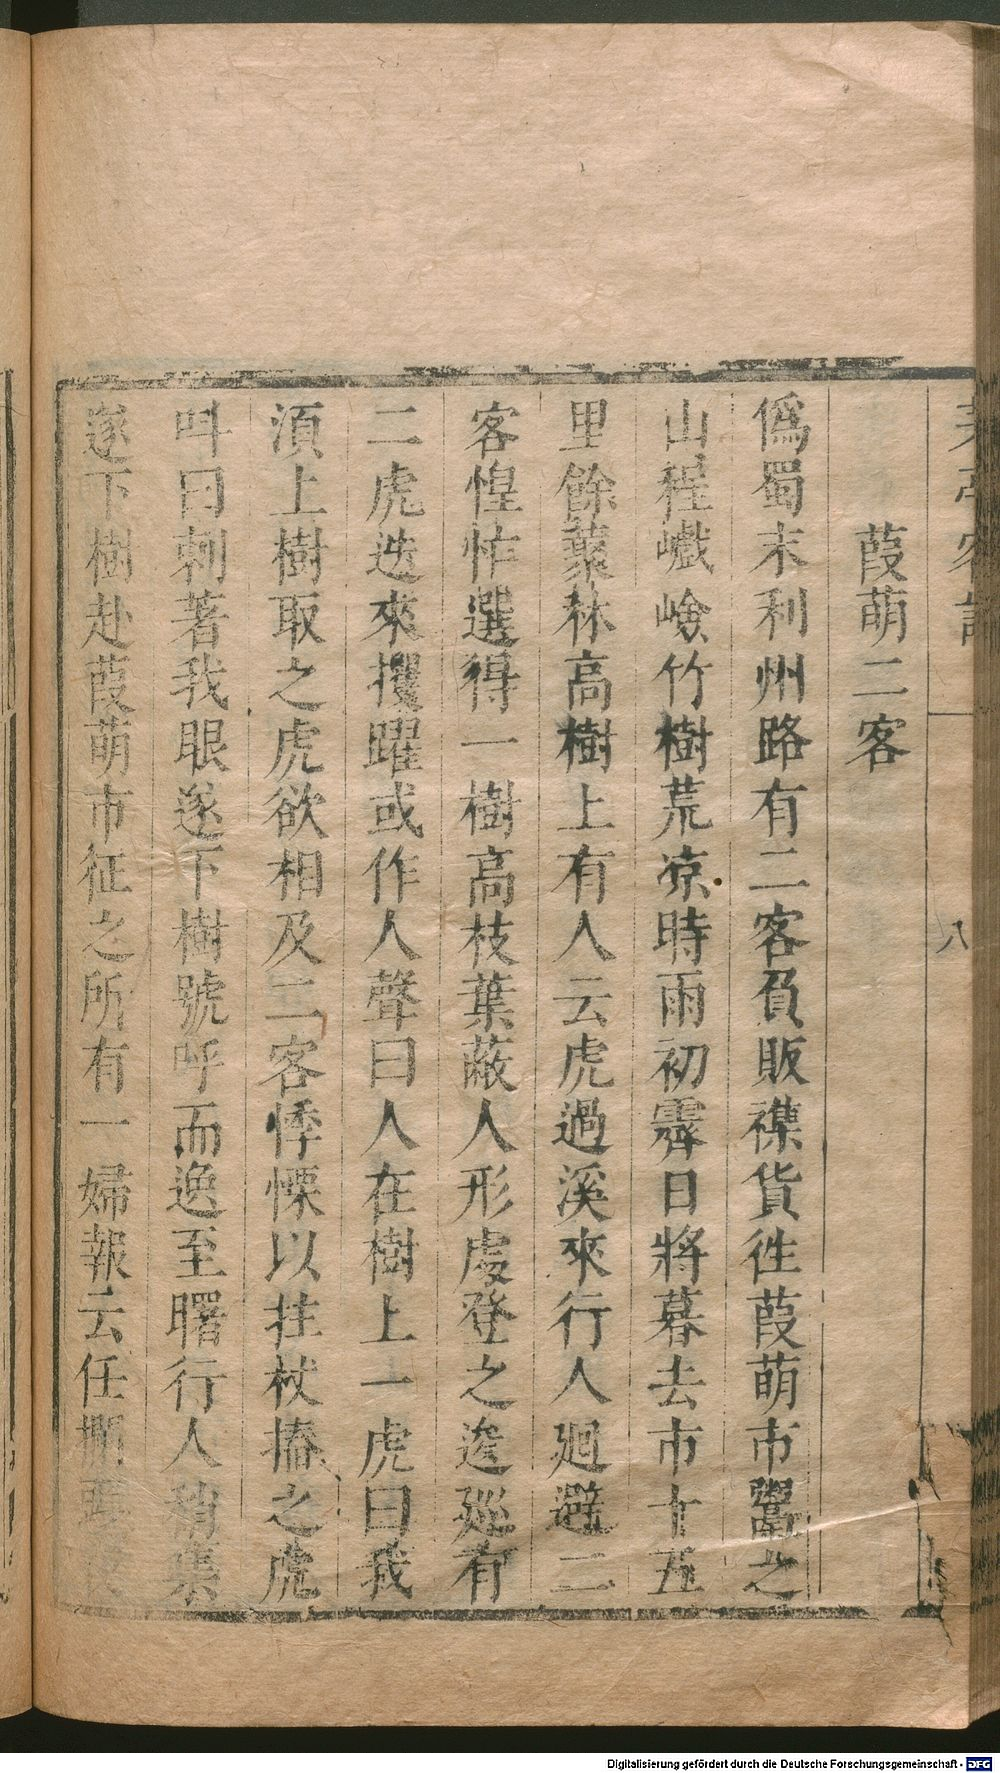 茅亭客話
八
葭萌二客
偽蜀末利州路有二客負販襍貨徃葭萌市鬻之
山程巇嶮竹樹荒凉時雨初霽日將暮去市十五
里餘藂林高樹上有人云虎過溪來行人廻避二
客惶怖選得一樹高枝葉蔽人形處登之逡廵有
二虎迭來攫躍或作人聲曰人在樹上一虎曰我
須上樹取之虎欲相及二客悸慄以拄杖摏之虎
呌曰刺著我眼遂下樹號呼而逸至曙行人稍集
遂下樹赴葭萌市征之所有一婦報云任攔
Digitalisierung gefördert durch die Deutsche Forschungsgemeinschaft - DFG